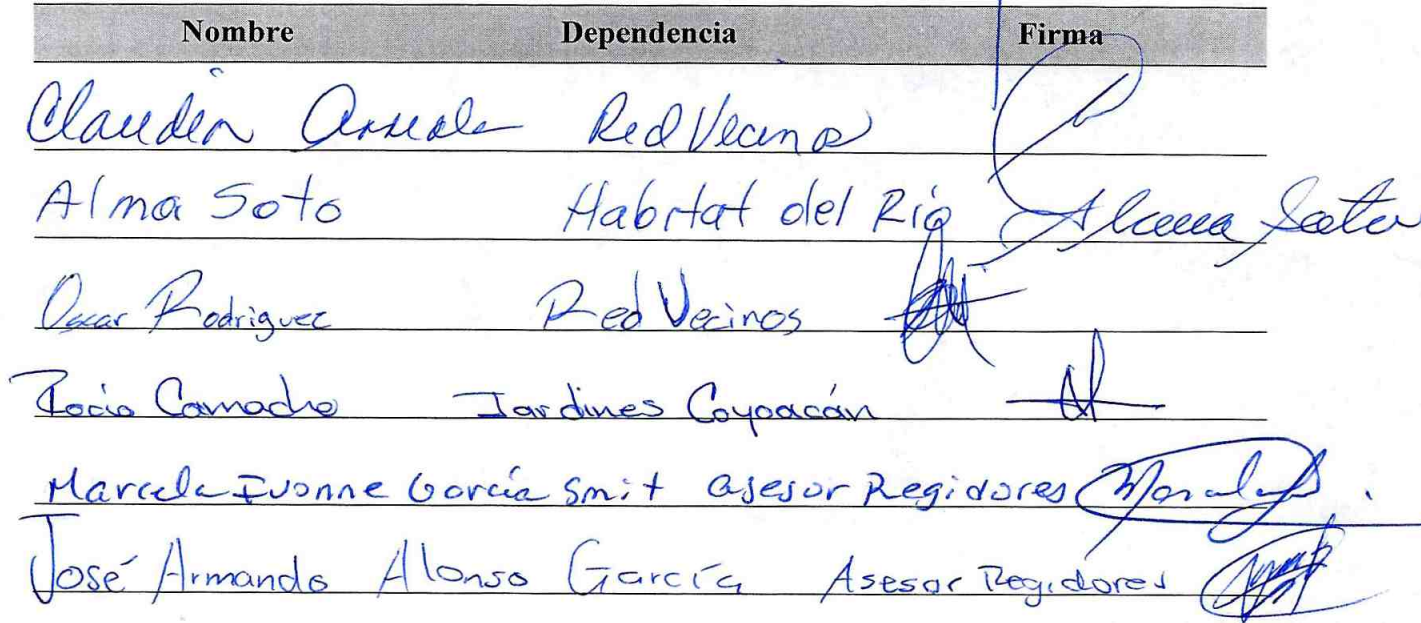 Nombre Dependencia Firma
Claudia Red Vecinos
Alma Soto Habitat del Río Alma Soto
Oscar Rodriguez Red Vecinos
Rocio Camacho Jardines Coyoacán
Marcela Ivonne García Smit Asesor Regidores
José Armando Alonso García Asesor Regidores